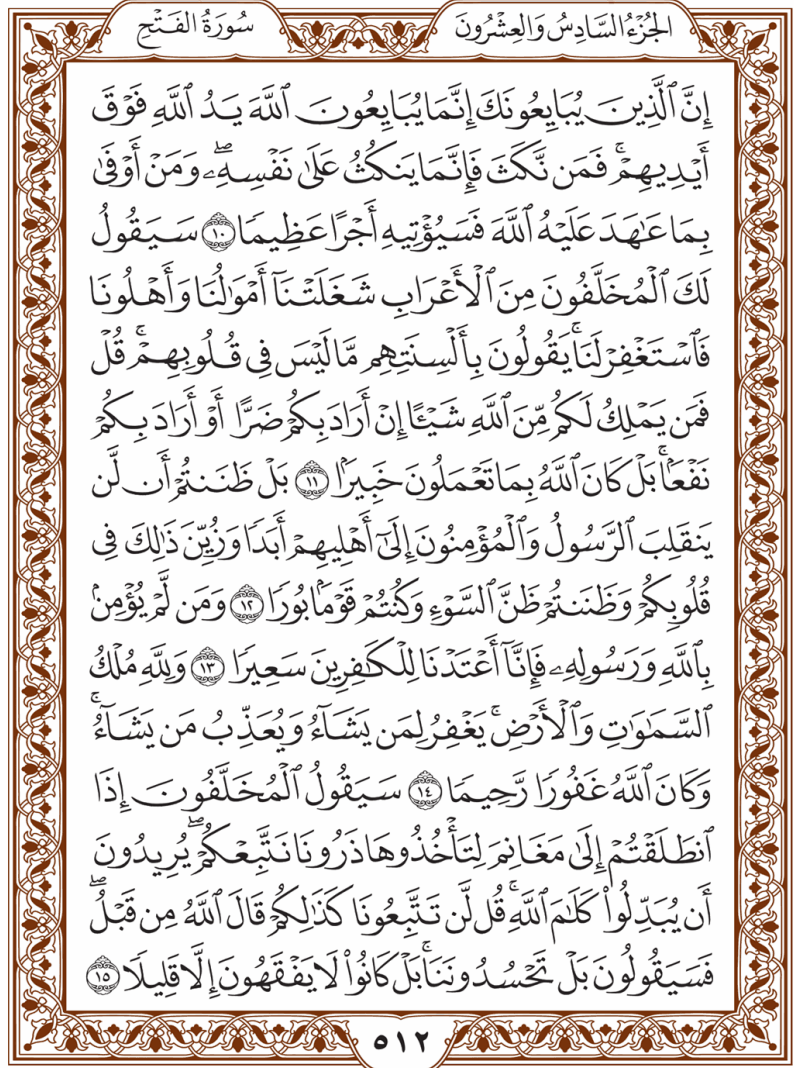 الجُزْءُ السَّادِسُ وَالعِشْرُونَ
سُورَةُ الفَتْحِ
إِنَّ ٱلَّذِينَ يُبَايِعُونَكَ إِنَّمَا يُبَايِعُونَ ٱللَّهَ يَدُ ٱللَّهِ فَوْقَ
أَيْدِيهِمْۚ فَمَن نَّكَثَ فَإِنَّمَا يَنكُثُ عَلَىٰ نَفْسِهِۦۖ وَمَنْ أَوْفَىٰ
بِمَا عَٰهَدَ عَلَيْهُ ٱللَّهَ فَسَيُؤْتِيهِ أَجْرًا عَظِيمٗا ١٠ سَيَقُولُ
لَكَ ٱلْمُخَلَّفُونَ مِنَ ٱلْأَعْرَابِ شَغَلَتْنَآ أَمْوَٰلُنَا وَأَهْلُونَا
فَٱسْتَغْفِرْ لَنَاۚ يَقُولُونَ بِأَلْسِنَتِهِم مَّا لَيْسَ فِي قُلُوبِهِمْۚ قُلْ
فَمَن يَمْلِكُ لَكُم مِّنَ ٱللَّهِ شَيْـًٔا إِنْ أَرَادَ بِكُمْ ضَرًّا أَوْ أَرَادَ بِكُمْ
نَفْعَۢاۚ بَلْ كَانَ ٱللَّهُ بِمَا تَعْمَلُونَ خَبِيرَۢا ١١ بَلْ ظَنَنتُمْ أَن لَّن
يَنقَلِبَ ٱلرَّسُولُ وَٱلْمُؤْمِنُونَ إِلَىٰٓ أَهْلِيهِمْ أَبَدٗا وَزُيِّنَ ذَٰلِكَ فِي
قُلُوبِكُمْ وَظَنَنتُمْ ظَنَّ ٱلسَّوْءِ وَكُنتُمْ قَوْمَۢا بُورٗا ١٢ وَمَن لَّمْ يُؤْمِنۢ
بِٱللَّهِ وَرَسُولِهِۦ فَإِنَّآ أَعْتَدْنَا لِلْكَٰفِرِينَ سَعِيرٗا ١٣ وَلِلَّهِ مُلْكُ
ٱلسَّمَٰوَٰتِ وَٱلْأَرْضِۚ يَغْفِرُ لِمَن يَشَآءُ وَيُعَذِّبُ مَن يَشَآءُۚ
وَكَانَ ٱللَّهُ غَفُورٗا رَّحِيمٗا ١٤ سَيَقُولُ ٱلْمُخَلَّفُونَ إِذَا
ٱنطَلَقْتُمْ إِلَىٰ مَغَانِمَ لِتَأْخُذُوهَا ذَرُونَا نَتَّبِعْكُمْۖ يُرِيدُونَ
أَن يُبَدِّلُوا۟ كَلَٰمَ ٱللَّهِۚ قُل لَّن تَتَّبِعُونَا كَذَٰلِكُمْ قَالَ ٱللَّهُ مِن قَبْلُۖ
فَسَيَقُولُونَ بَلْ تَحْسُدُونَنَاۚ بَلْ كَانُوا۟ لَا يَفْقَهُونَ إِلَّا قَلِيلٗا ١٥
٥١٢